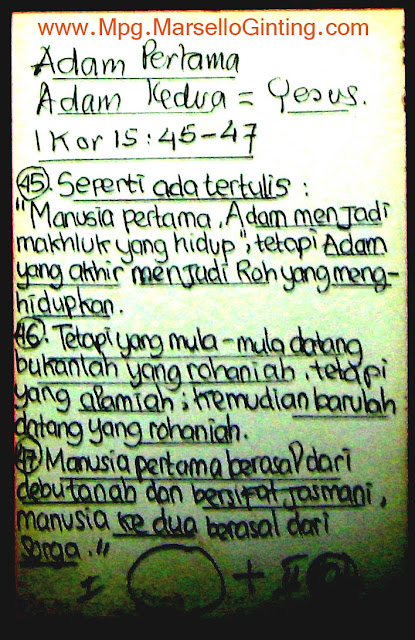 www.Mpg.MarselloGinting.com
Adam Pertama
Adam Kedua = Yesus.
1 Kor 15 : 45-47
45. Seperti ada tertulis :
"Manusia pertama, Adam menjadi
makhluk yang hidup", tetapi Adam
yang akhir menjadi Roh yang meng-
hidupkan.
46. Tetapi yang mula-mula datang
bukanlah yang rohaniah, tetapi
yang alamiah; kemudian barulah
datang yang rohaniah.
47 Manusia pertama berasal dari
debu tanah dan bersifat jasmani,
manusia ke dua berasal dari
sorga."
I + II